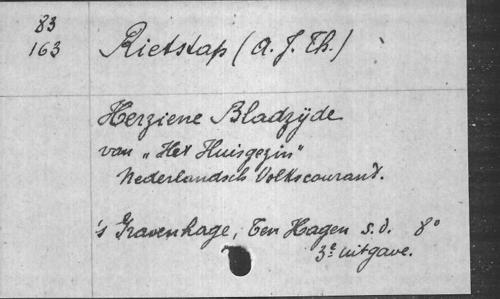 83
163
Rietstap (A. J. Th.)
Herziene Bladzijde
van „Het Huisgezin"
Nederlandsch Volkscourant.
's Gravenhage, Ten Hagen s.d. 8°
3e uitgave.